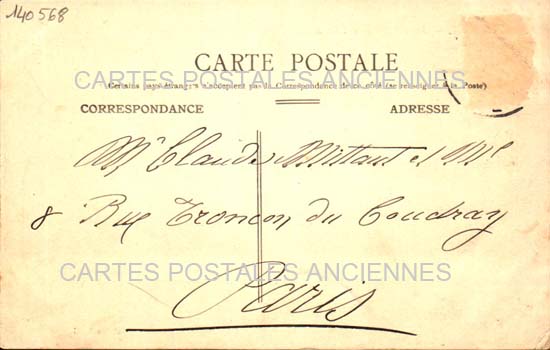 140568
CARTE POSTALE
CARTES POSTALES ANCIENNES
Certains pays étrangers n'acceptent pas de Correspondance de ce côté (se renseigner à la Poste)
CORRESPONDANCE ADRESSE
Mr Claude Mittant et Mme
8 Rue Tronçon du Coudray
CARTES POSTALES ANCIENNES
Paris